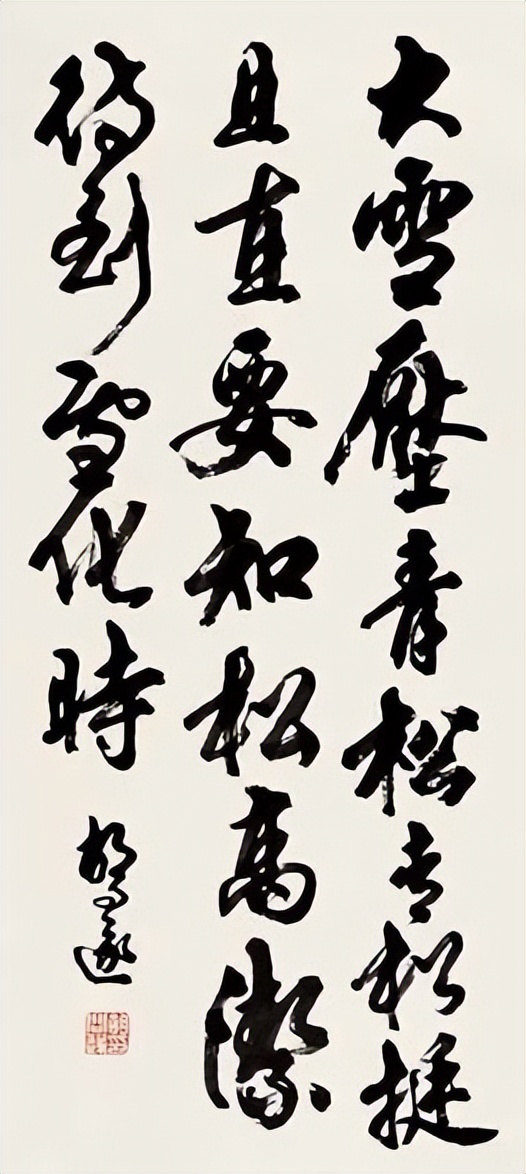 大雪壓青松青松挺
且直要知松高潔
待到雪化時
胡问遂